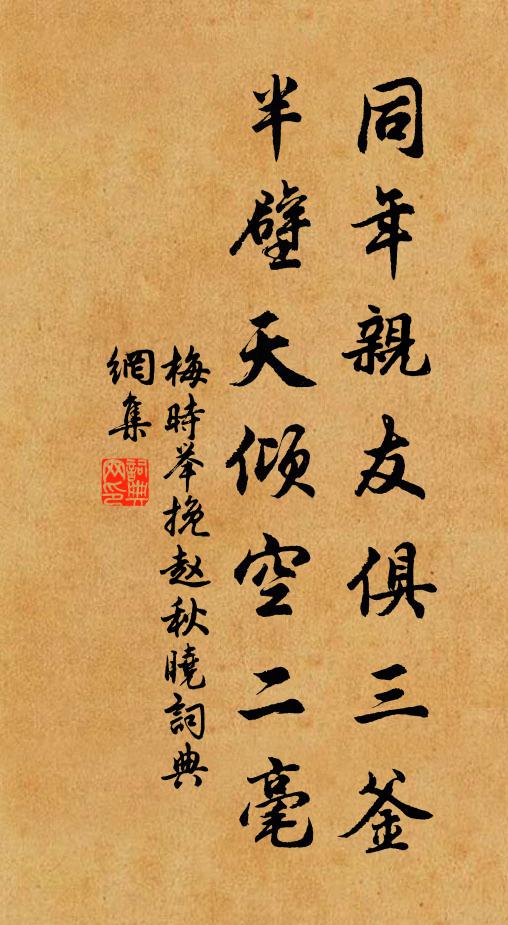 同年親友俱三釜
半壁天傾空二毫
梅時举挽赵秋曉詞典
網集
詞典网印